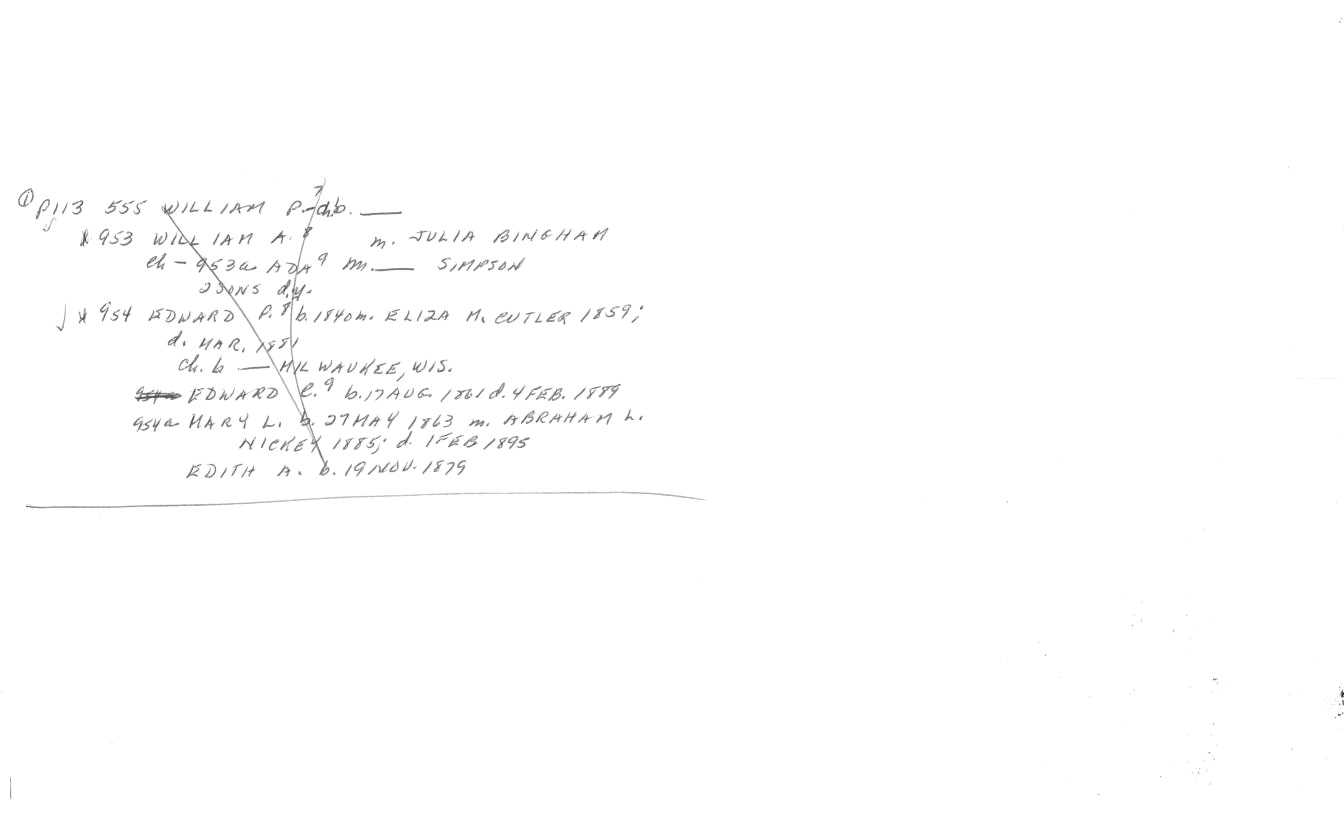 ① P113 555 WILLIAM P.⁷ ch.b. —
* 953 WILLIAM A.⁸ m. JULIA BINGHAM
ch — 953a ADA⁹ m. — SIMPSON
2 SONS d.y.
* 954 EDWARD P.⁸ b. 1840 m. ELIZA M. CUTLER 1859;
d. MAR. 1881
ch. b — MILWAUKEE, WIS.
EDWARD C.⁹ b. 17 AUG. 1861 d. 4 FEB. 1889
954a MARY L. b. 27 MAY 1863 m. ABRAHAM L.
NICKEY 1885; d. 1 FEB 1895
EDITH A. b. 19 NOV. 1879